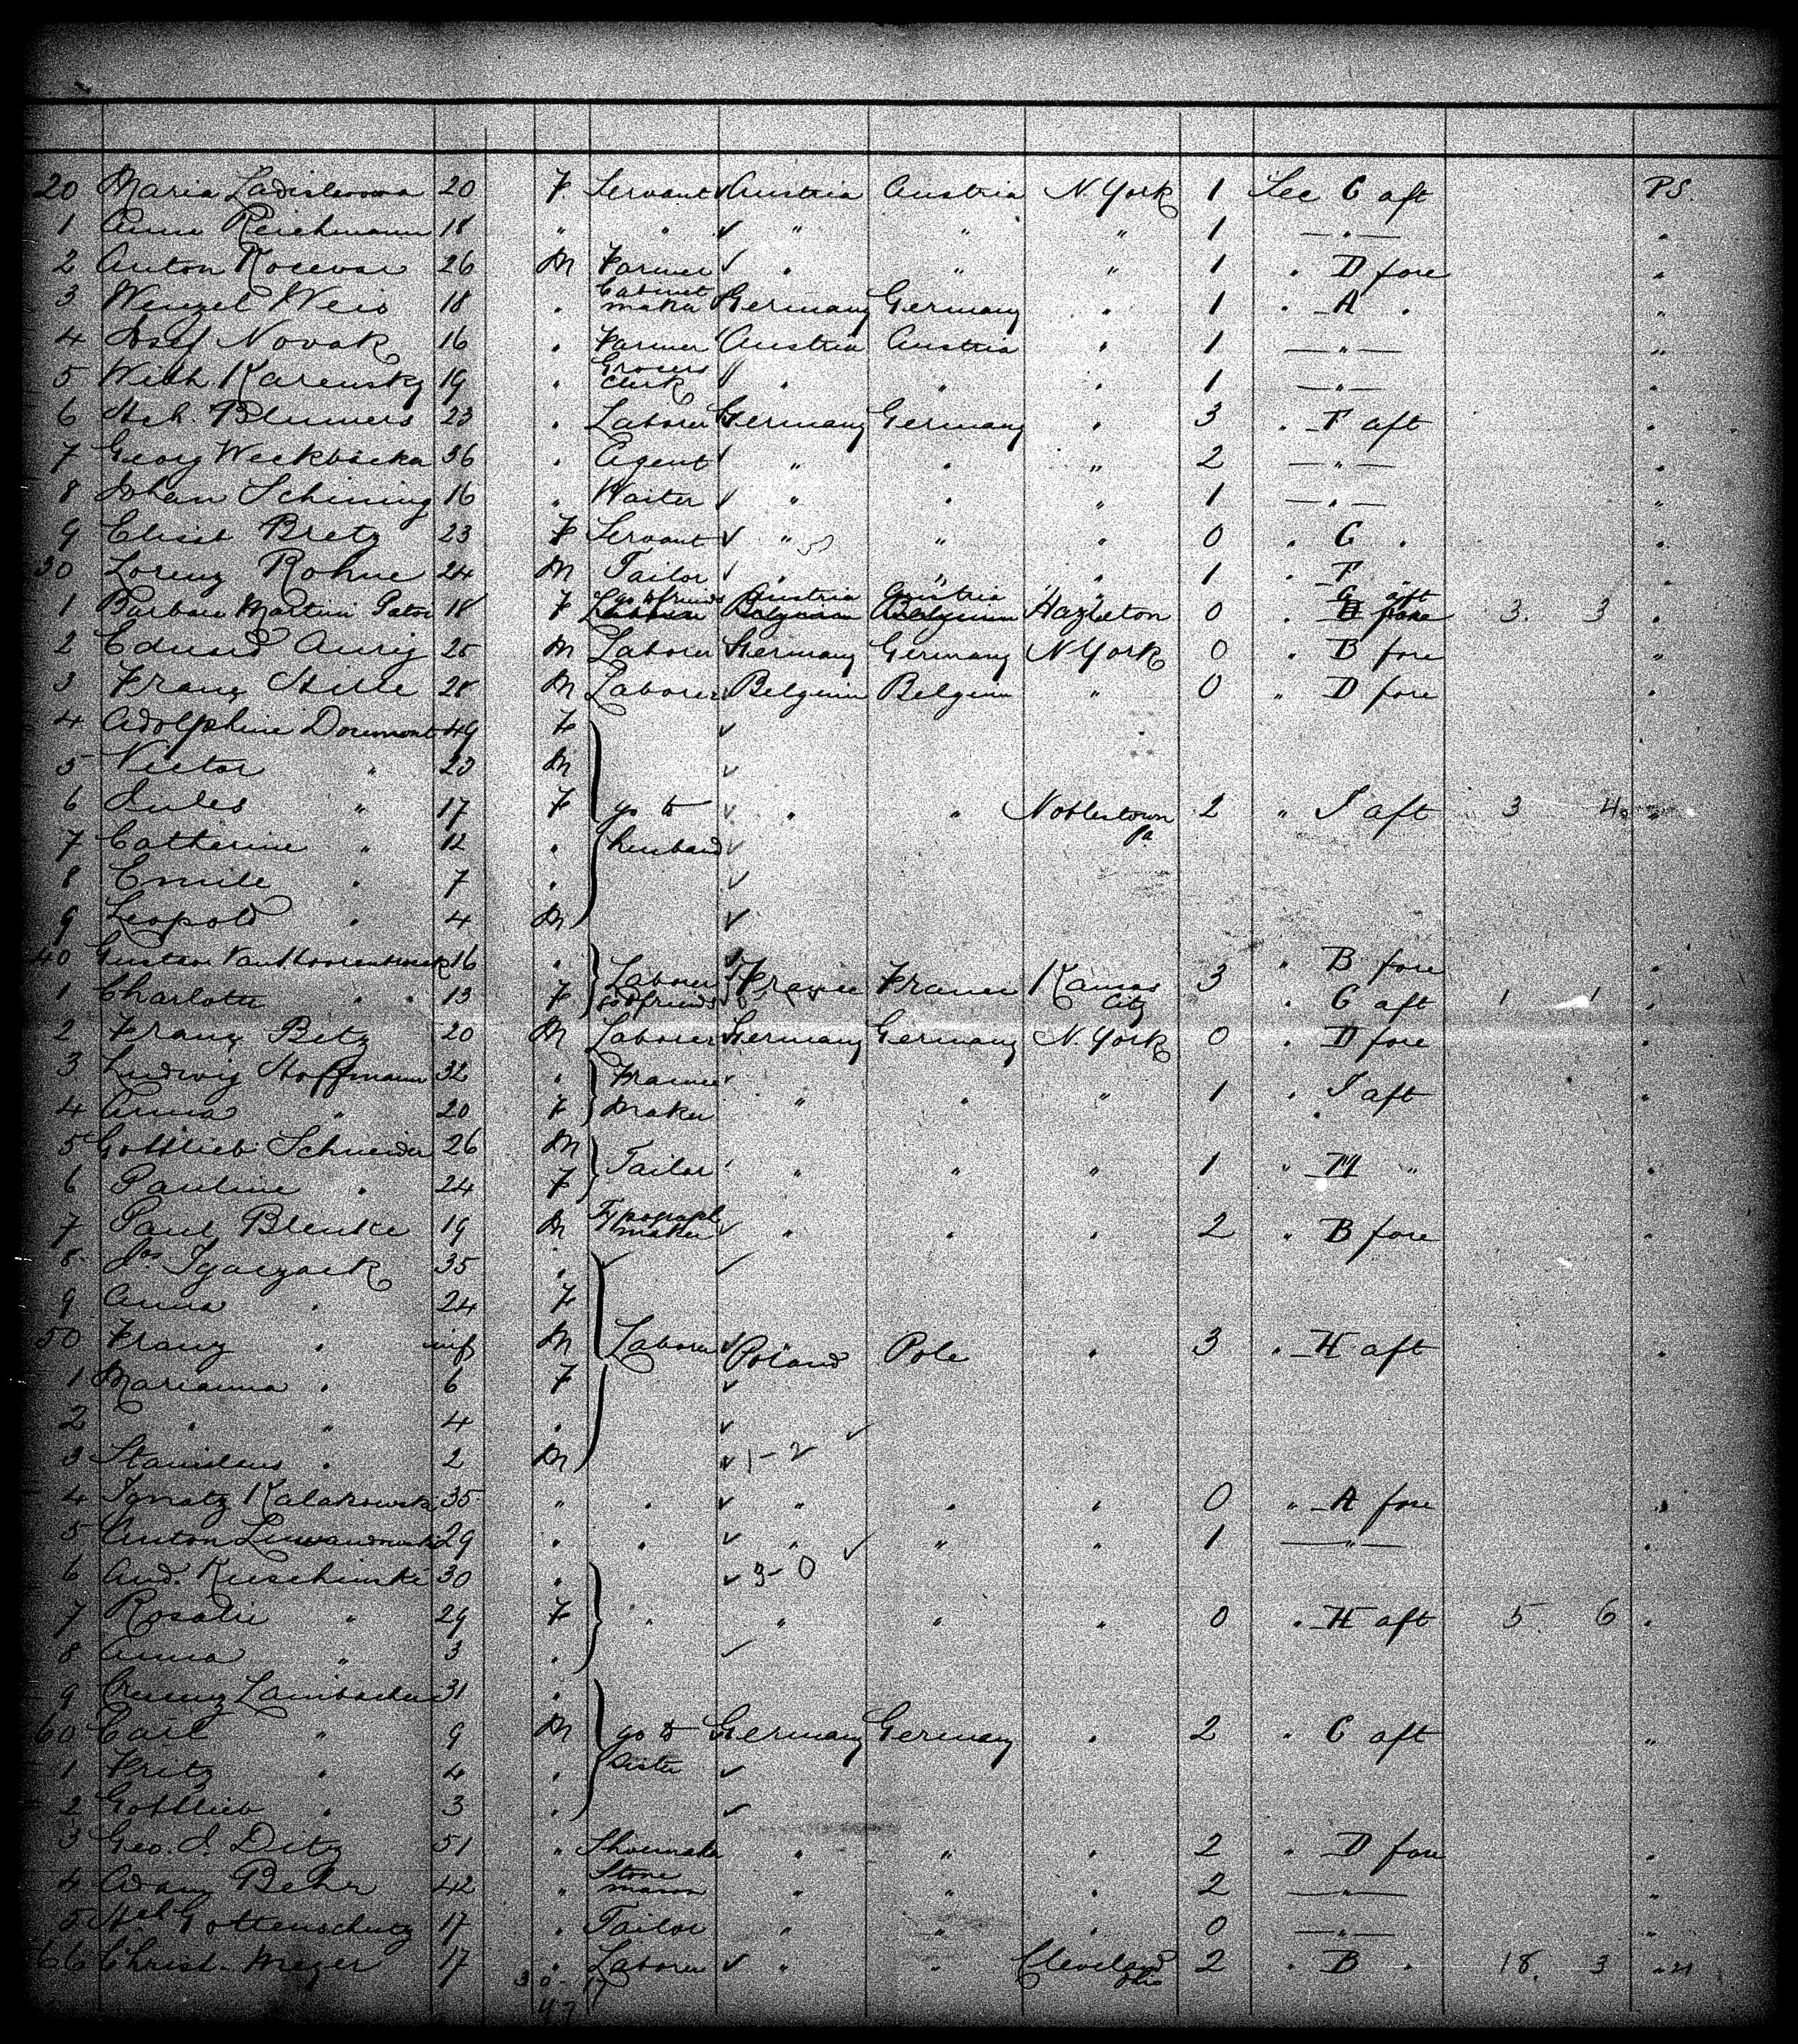 20 Maria Ladislawowa 20 F. Servant Austria Austria N. York 1 Sec C aft P.S.
1 Anna Reichmann 18 " " " " " 1 — " — "
2 Anton Kocevar 26 M Farmer " " " 1 " D fore "
3 Wenzel Weis 18 " Cabinet maker Germany Germany " 1 " A " "
4 Josef Novak 16 " Farmer Austria Austria " 1 — " — "
5 Wilh. Karensky 19 " Grocers clerk " " " 1 — " — "
6 Hch. Blumers 23 " Laborer Germany Germany " 3 " F aft "
7 Georg 36 " Agent " " " 2 — " — "
8 Johan Schining 16 " Waiter " " " 1 — " — "
9 Elise Bretz 23 F Servant " " " 0 " C " "
30 Lorenz Rohne 24 M Tailor " " " 1 " F " "
1 Barbara Martini 18 F go to friends Austria Austria Hazleton 0 " G aft 3. 3 "
2 Eduard Aurig 25 M Laborer Germany Germany N York 0 " B fore "
3 Franz Hille 28 M Laborer Belgium Belgium " 0 " D fore "
4 Adolphine Dorimont 49 F
5 Victor " 23 M
6 Jules " 17 F go to " " Noblestown Pa 2 " I aft 3 4 "
7 Catherine " 12 " husband
8 Emile " 7 "
9 Leopold " 4 M
40 Gustav 16 " Laborer France France Kansas City 3 " B fore "
1 Charlotte " 13 F go to friends " C aft 1 1 "
2 Franz Betz 20 M Laborer Germany Germany N. York 0 " D fore "
3 Ludwig Hoffmann 32 " Frame
4 Anna " 20 F maker " " " 1 " I aft "
5 Gottlieb Schneider 26 M
6 Pauline " 24 F Tailor " " " 1 " M " "
7 Paul Blenke 19 M Typograph maker " " " 2 " B fore "
8 Jos. 35 "
9 Anna " 24 F
50 Franz " inf M Laborer Poland Pole " 3 " H aft "
1 Marianna " 6 F
2 " " 4 "
3 Stanislaus " 2 M 1-2
4 Ignatz Kalakowski 35 " " " " " 0 " A fore "
5 Anton Lewandowski 29 " " " " " 1 — " — "
6 And. 30 " 3-0
7 Rosalie " 29 F " " " " 0 " H aft 5. 6 "
8 Anna " 3 "
9 Lambacher 31 "
60 Carl " 9 M go to Germany Germany " 2 " C aft "
1 Fritz " 4 " sister
2 Gottlieb " 3 "
3 Geo. J. Ditz 51 " Shoemaker " " " 2 " D fore "
4 Adam Behr 42 " Stone mason " " " 2 — " — "
5 Hch Gottenschutz 17 " Tailor " " " 0 — " — "
66 Christ. Meyer 17 " Laborer " " Cleveland Ohio 2 " B " 18. 3 "
30 17
47